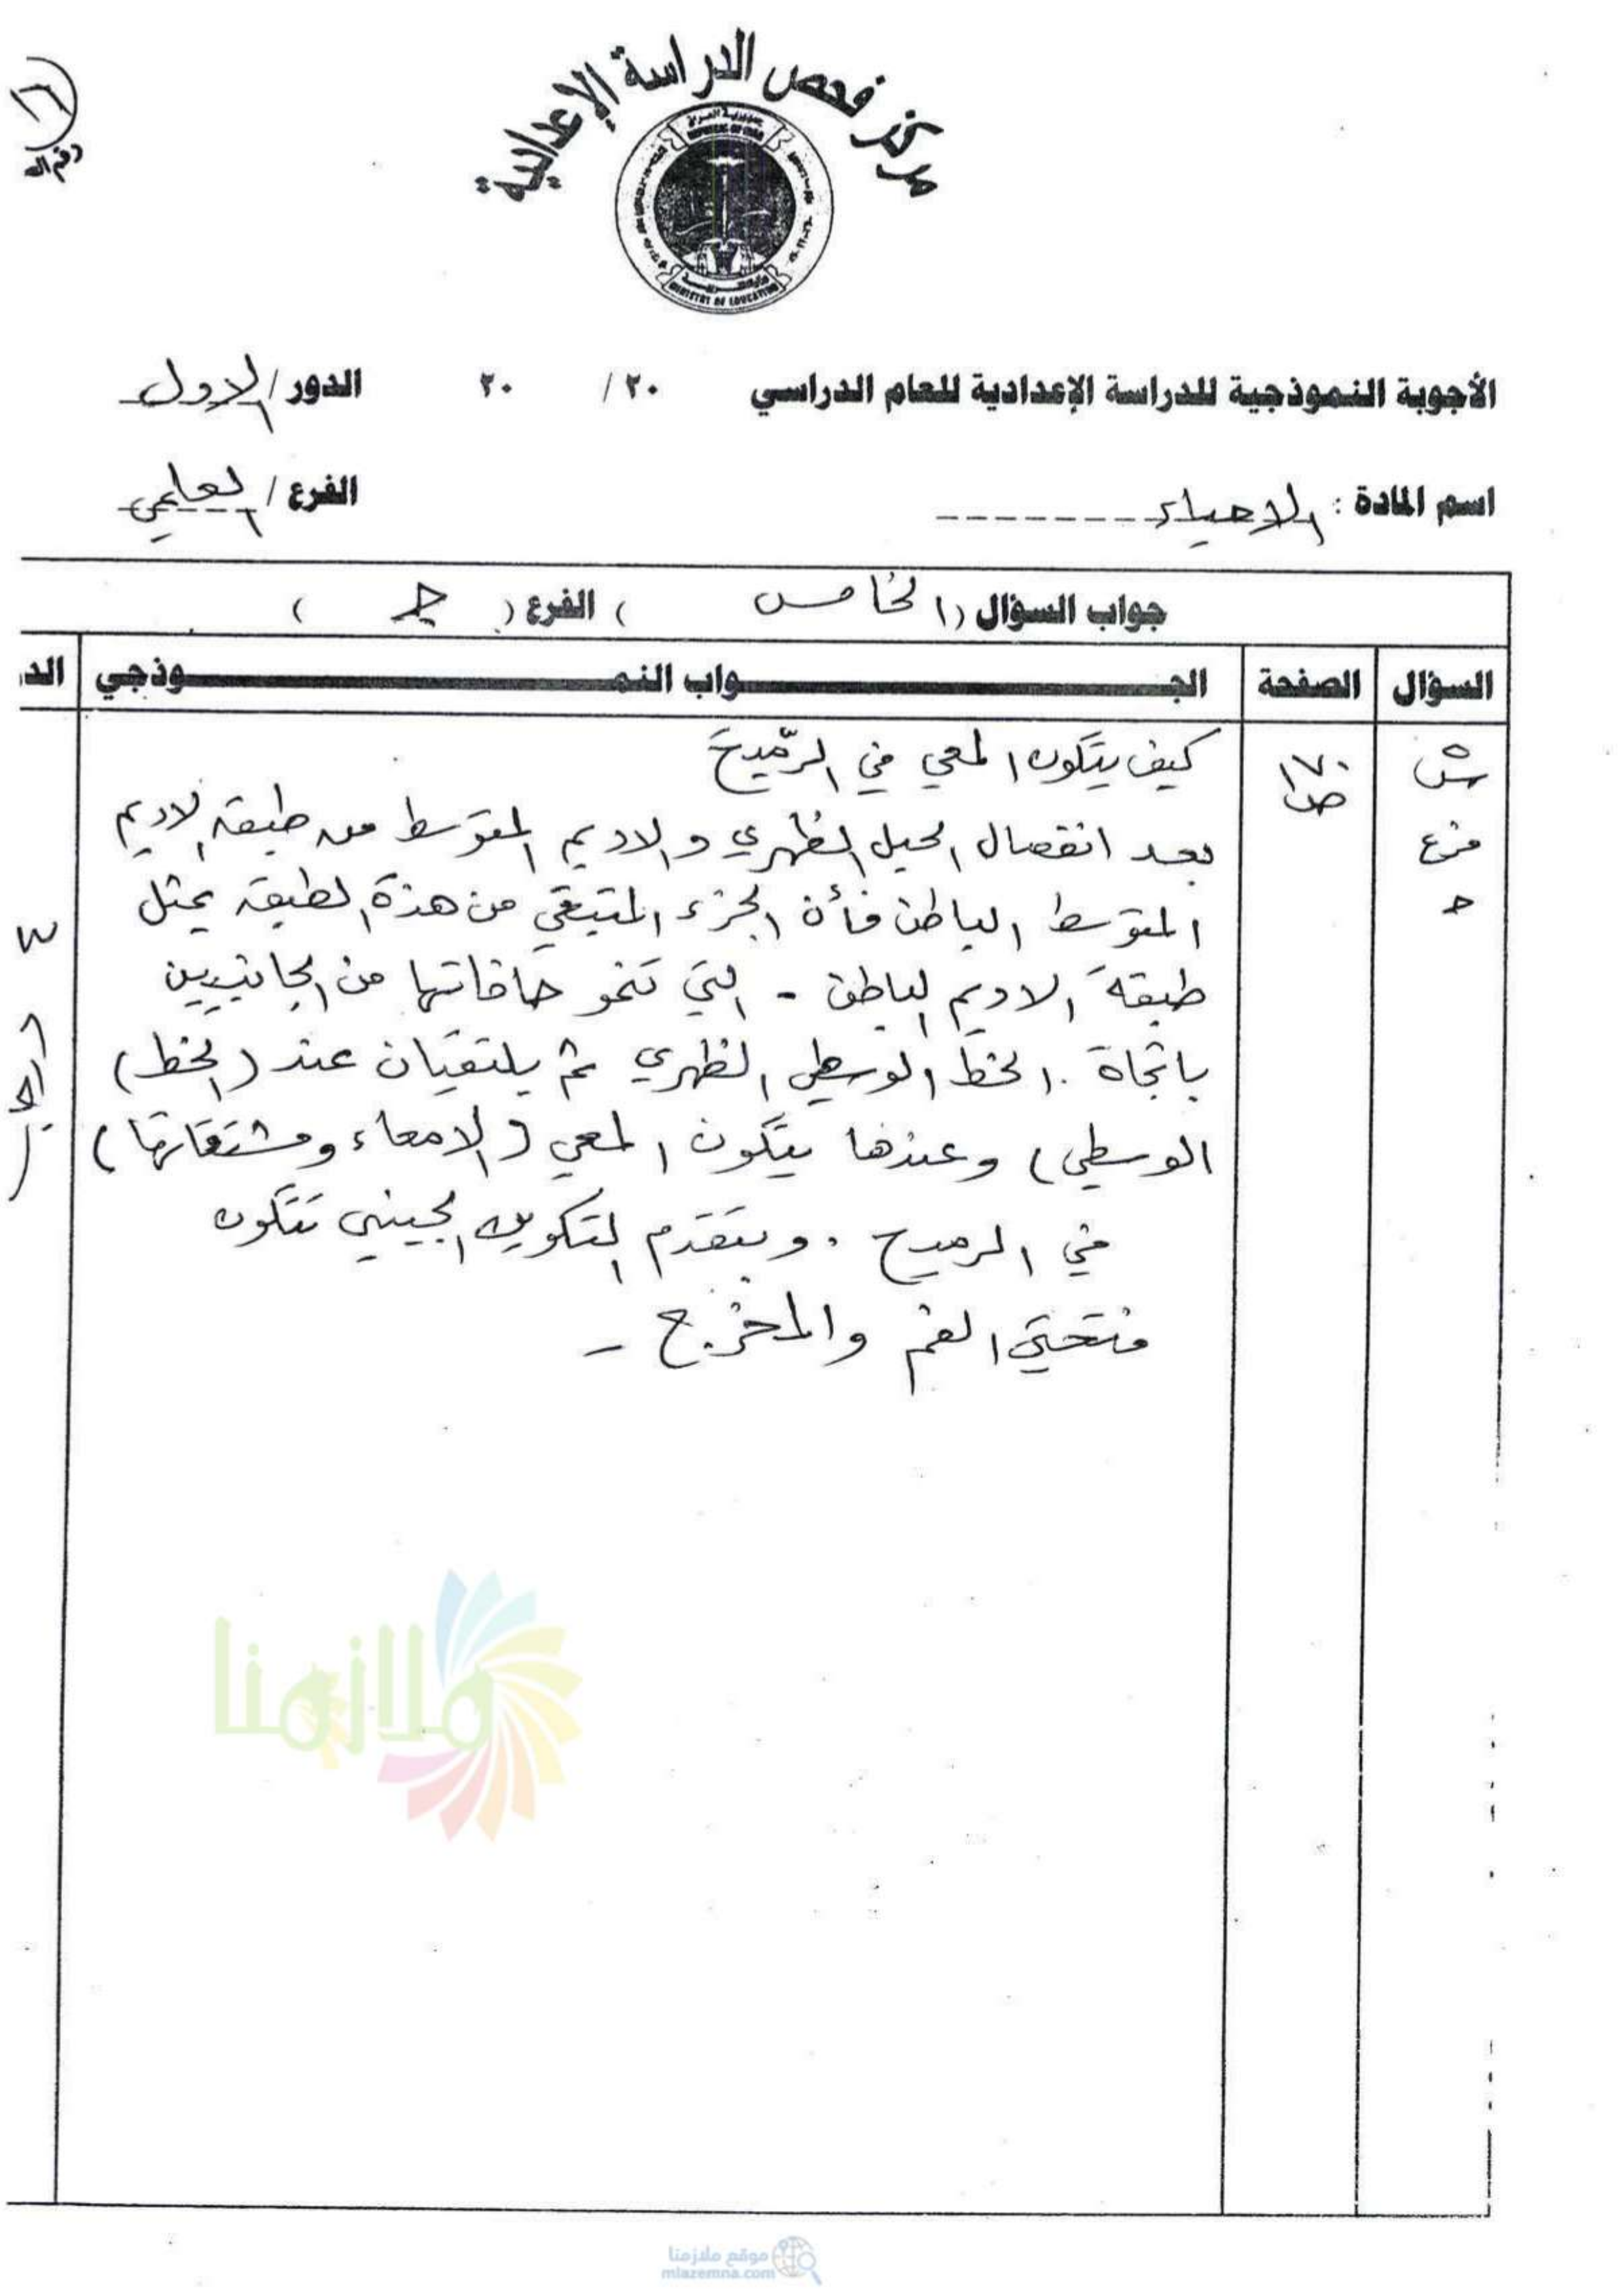 مركز فحص الدراسة الإعدادية
جمهورية العراق
REPUBLIC OF IRAQ
MINISTRY OF EDUCATION
١٦
رقم ال
الأجوبة النموذجية للدراسة الإعدادية للعام الدراسي ٢٠ / ٢٠ الدور / الاول
اسم المادة : الاحياء الفرع / العلمي
جواب السؤال ( الخامس ) الفرع ( جـ )
السؤال الصفحة الجـواب النمـوذجي الد
س٥ فرع جـ
ص١٧٠
كيف يتكون المعي في الرّميح
بعد انفصال الحبل الظهري والاديم المتوسط من طبقة الاديم
المتوسط الباطن فأن الجزء المتبقي من هذة الطبقة يمثل
طبقة الاديم الباطن - التي تنمو حافاتها من الجانبيين
باتجاة الخط الوسطي الظهري ثم يلتقيان عند (الخط)
الوسطي) وعندها يتكون المعي (الامعاء ومشتقاتها)
في الرميح . وبتقدم التكوين الجنيني تتكون
فتحتي الفم والمخرج -
٣
ملازمنا
موقع ملازمنا
mlazemna.com